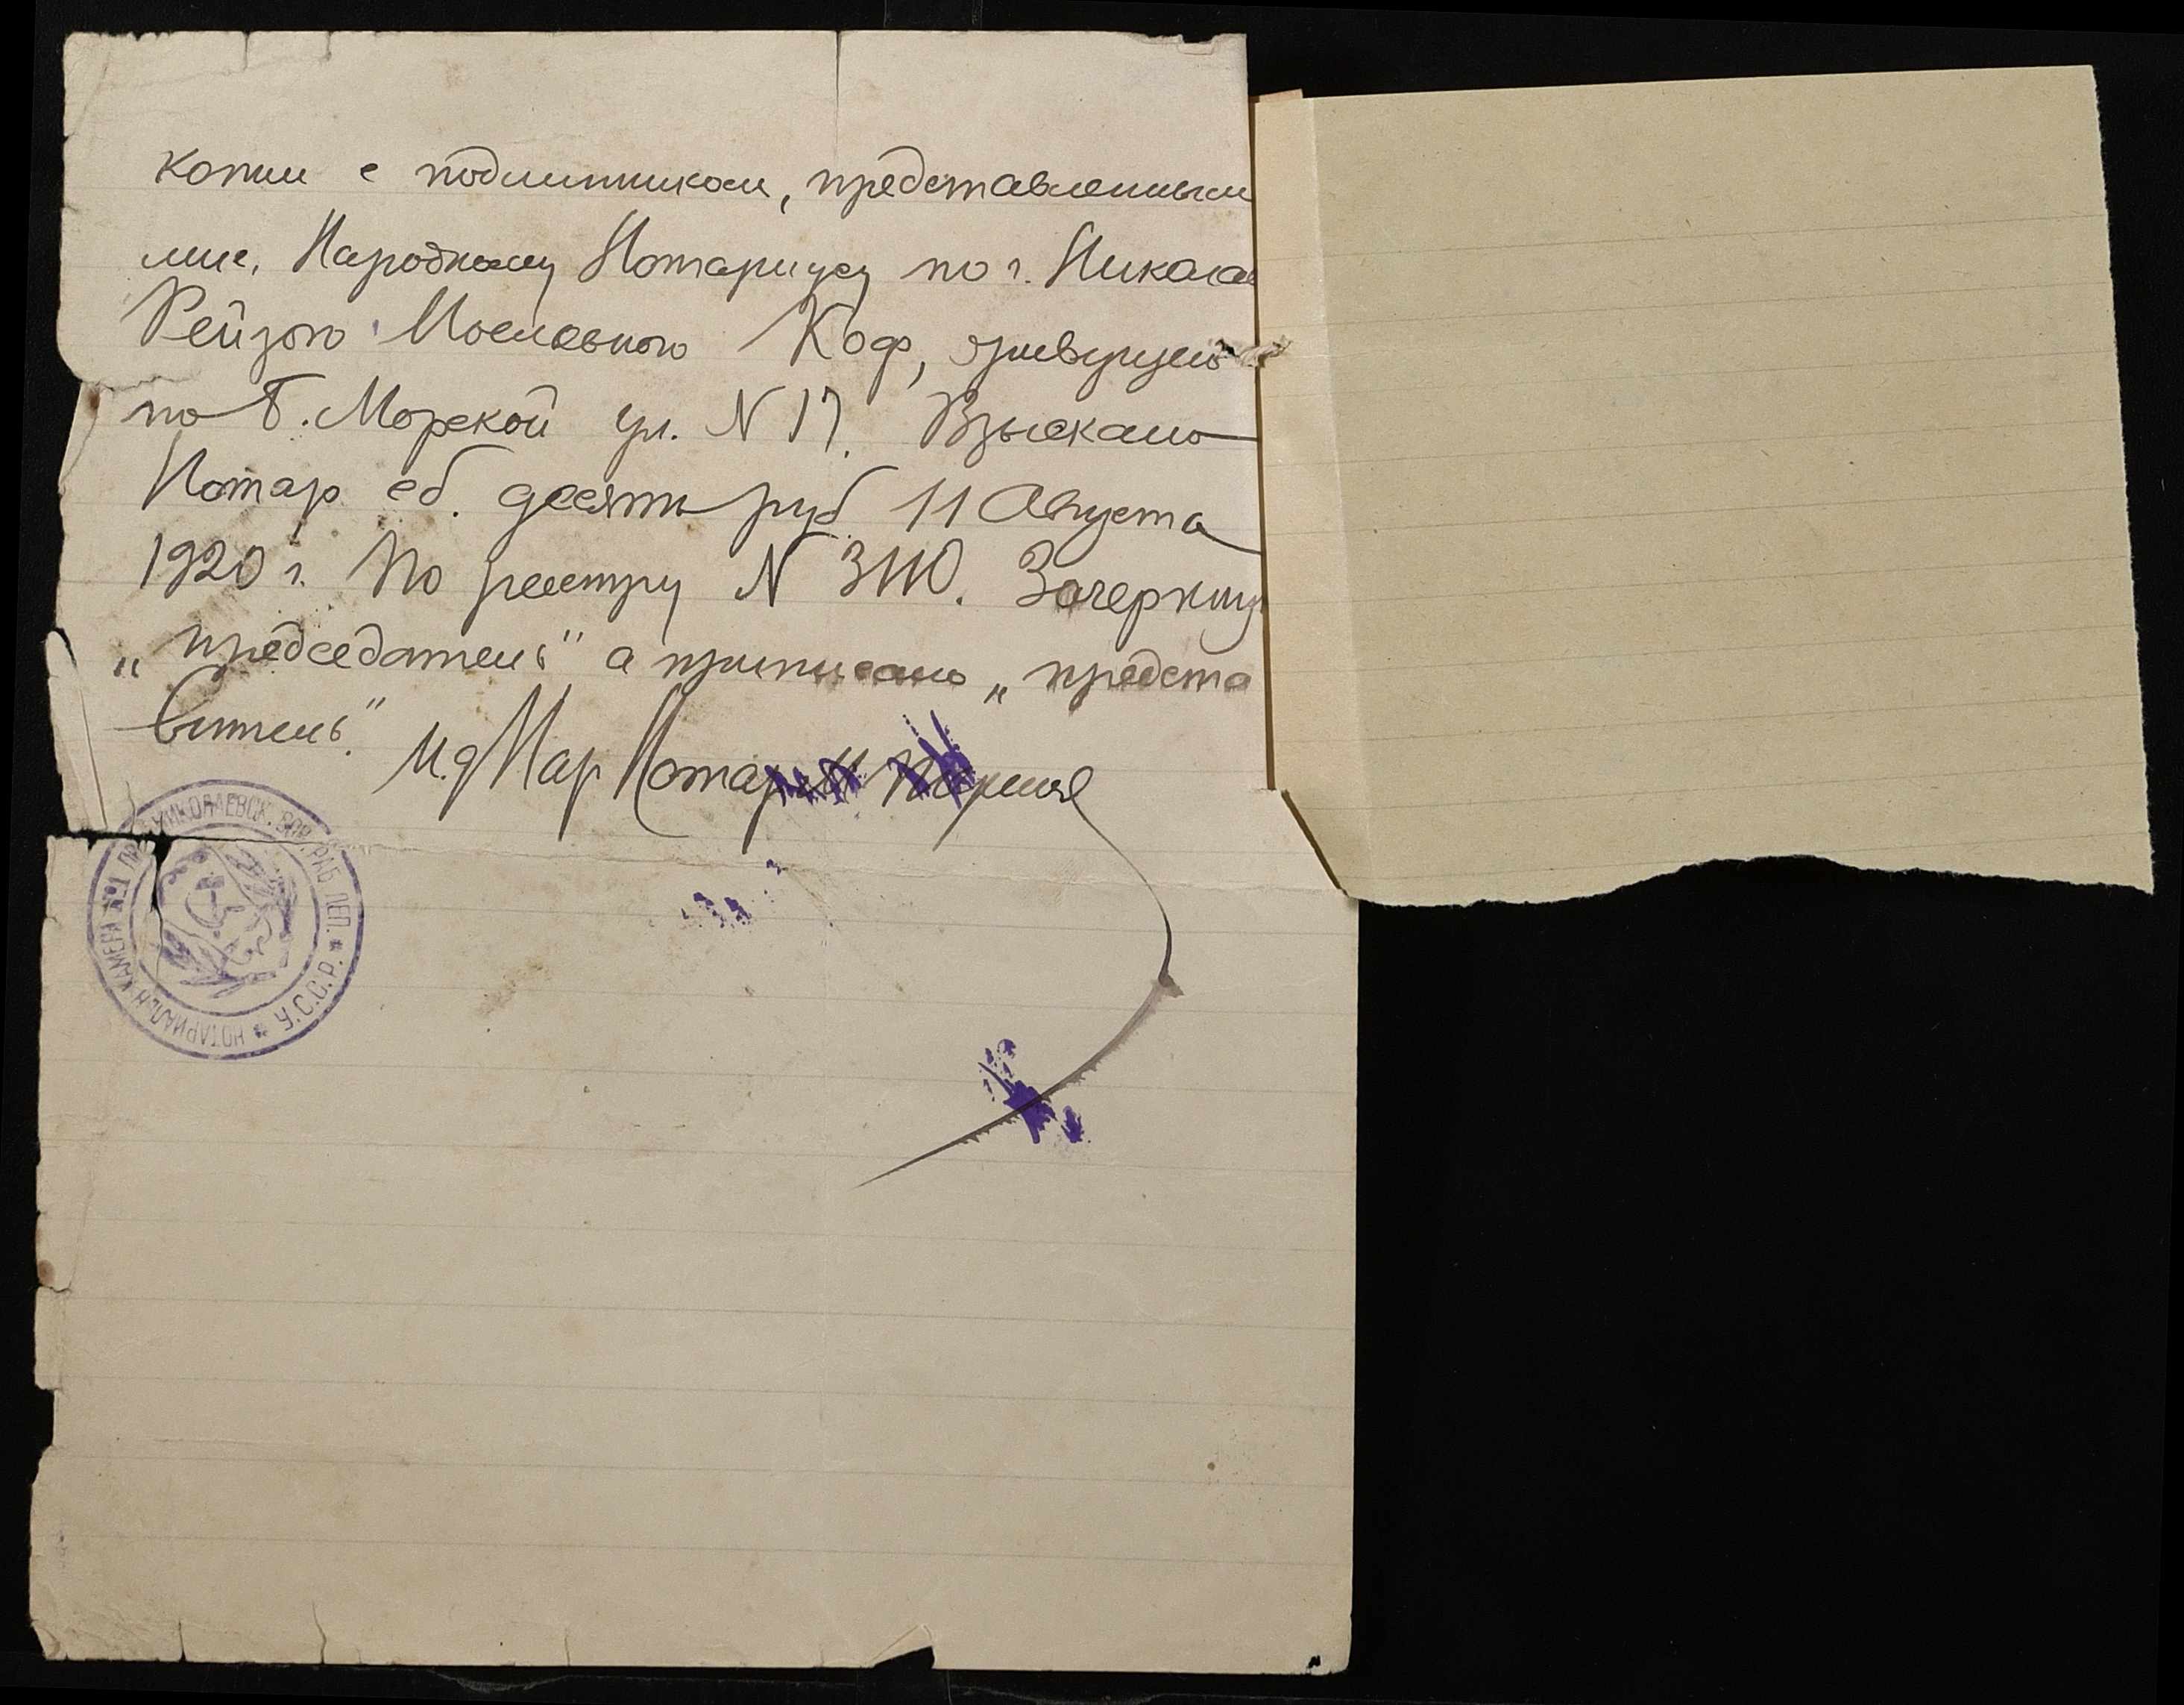 копии с подлинником, представленным
мне, Народному Нотариусу по г. Никола
Рейзою Мосеевною Коф, живущею
по Б. Морской ул. N 17. Взыскано
Нотар сб. десять руб 11 Августа
1920 г. По реестру N 3110. Зачеркнут
„председатель" а приписано „предста
витель".
И.д Нар Нотар
НОТАРИАЛЬН КАМЕРА №1 НИКОЛАЕВСК. РАБ. ДЕП. * У.С.С.Р. *